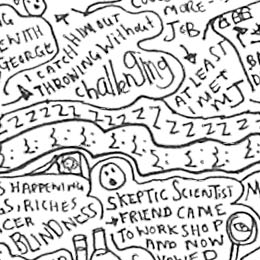 MORE
JOB
WITH
GEORGE
I CATCH HIM OUT
THROWING WITHOUT
challeNging
AT LEAST
I MET
MJ
ZZZZZZZZZZZZZZ
S HAPPENING
S: RICHES
CER
BLINDNESS
SKEPTIC SCIENTIST
→FRIEND CAME
TO WORKSHOP
AND NOW